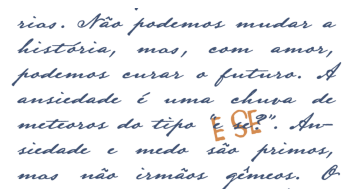 rias. Não podemos mudar a
história, mas, com amor,
podemos curar o futuro. A
ansiedade é uma chuva de
meteoros do tipo "e se?". An-
E SE
siedade e medo são primos,
mas não irmãos gêmeos. O